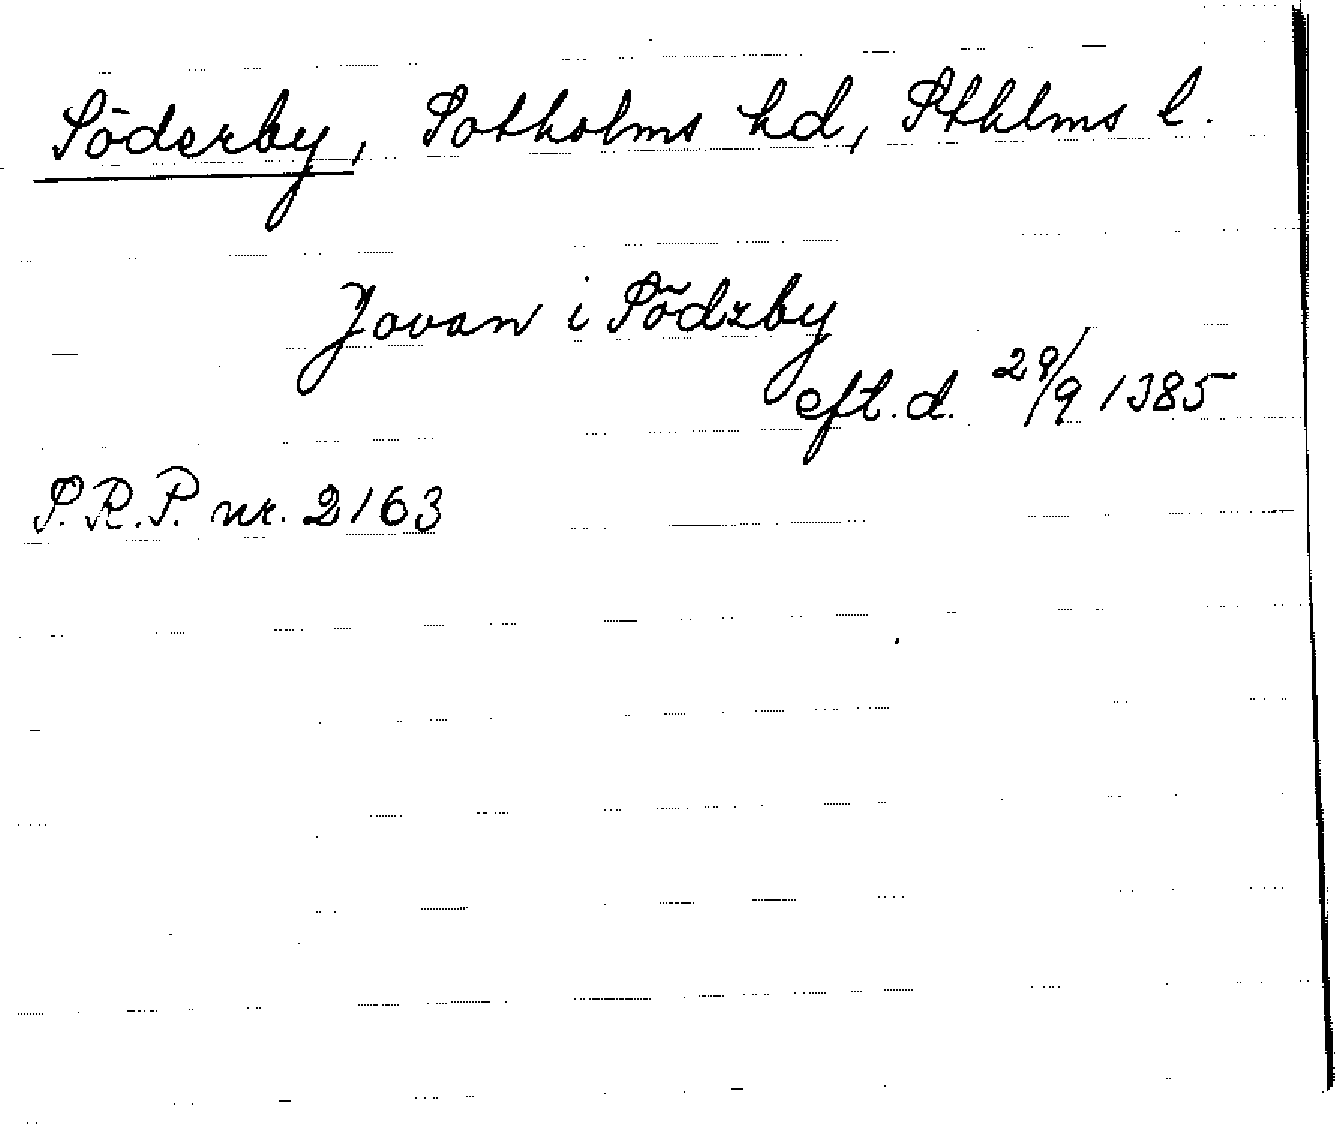 Söderby, Sotholms hd, Sthlms l.
Jovan i Södzby
eft. d. 29/9 1385
S.R.P. nr. 2163